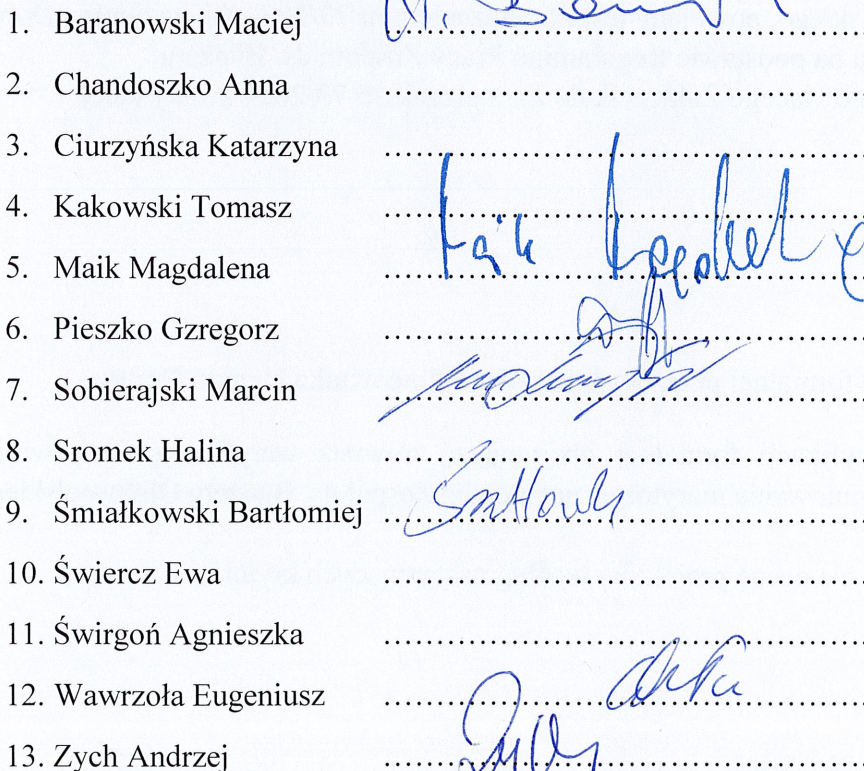 1. Baranowski Maciej ..............................
2. Chandoszko Anna ..............................
3. Ciurzyńska Katarzyna ..............................
4. Kakowski Tomasz ..............................
5. Maik Magdalena ..............................
6. Pieszko Gzregorz ..............................
7. Sobierajski Marcin ..............................
8. Sromek Halina ..............................
9. Śmiałkowski Bartłomiej ..............................
10. Świercz Ewa ..............................
11. Świrgoń Agnieszka ..............................
12. Wawrzoła Eugeniusz ..............................
13. Zych Andrzej ..............................